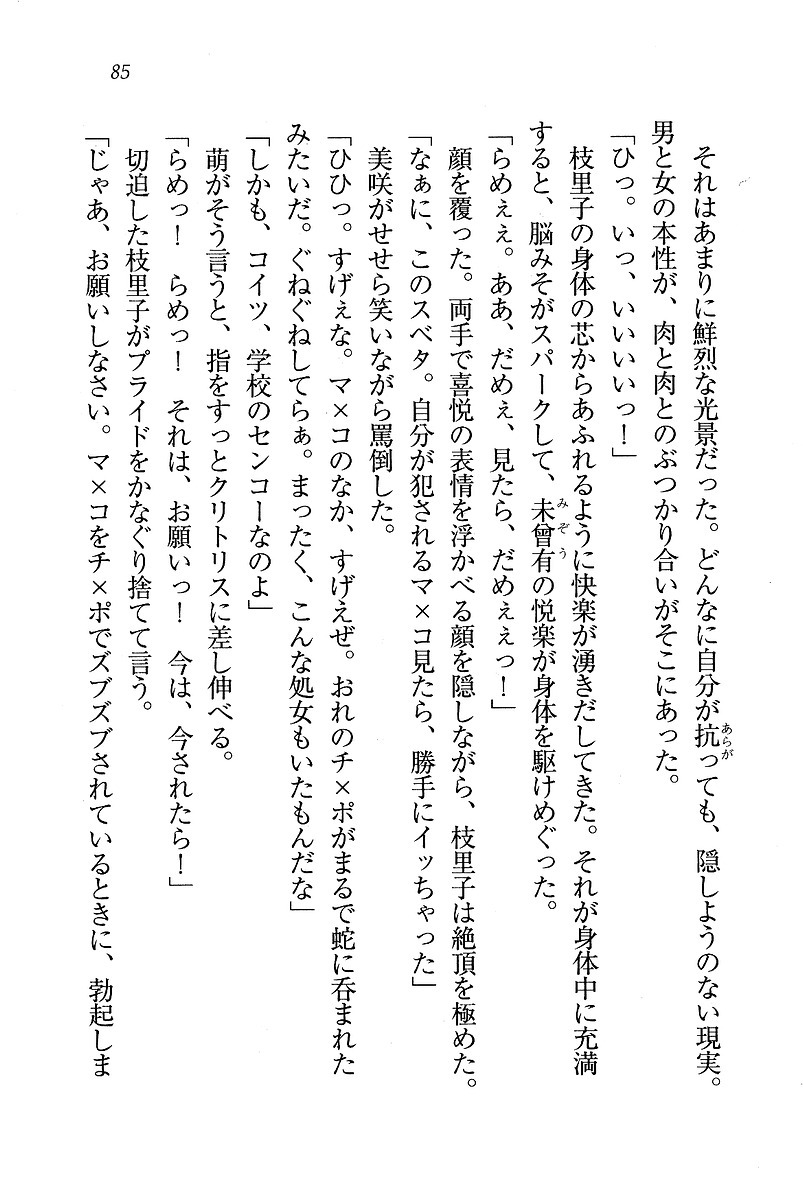 85
それはあまりに鮮烈な光景だった。どんなに自分が抗っても、隠しようのない現実。
男と女の本性が、肉と肉とのぶつかり合いがそこにあった。
「ひっ。いっ、いいいいっ！」
枝里子の身体の芯からあふれるように快楽が湧きだしてきた。それが身体中に充満
すると、脳みそがスパークして、未曾有の悦楽が身体を駆けめぐった。
「らめぇぇ。ああ、だめぇ、見たら、だめぇぇっ！」
顔を覆った。両手で喜悦の表情を浮かべる顔を隠しながら、枝里子は絶頂を極めた。
「なぁに、このスベタ。自分が犯されるマ×コ見たら、勝手にイッちゃった」
美咲がせせら笑いながら罵倒した。
「ひひっ。すげぇな。マ×コのなか、すげえぜ。おれのチ×ポがまるで蛇に呑まれた
みたいだ。ぐねぐねしてらぁ。まったく、こんな処女もいたもんだな」
「しかも、コイツ、学校のセンコーなのよ」
萌がそう言うと、指をすっとクリトリスに差し伸べる。
「らめっ！　らめっ！　それは、お願いっ！　今は、今されたら！」
切迫した枝里子がプライドをかなぐり捨てて言う。
「じゃあ、お願いしなさい。マ×コをチ×ポでズブズブされているときに、勃起しま